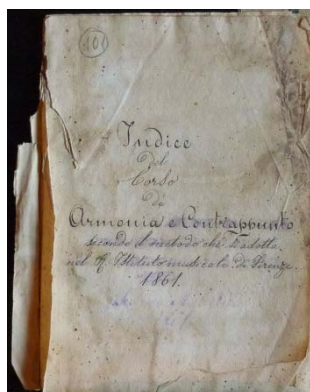 101
Indice
del
Corso
di
Armonia e Contrappunto
secondo il metodo che si adotta
nel R. Istituto musicale di Firenze.
1861.